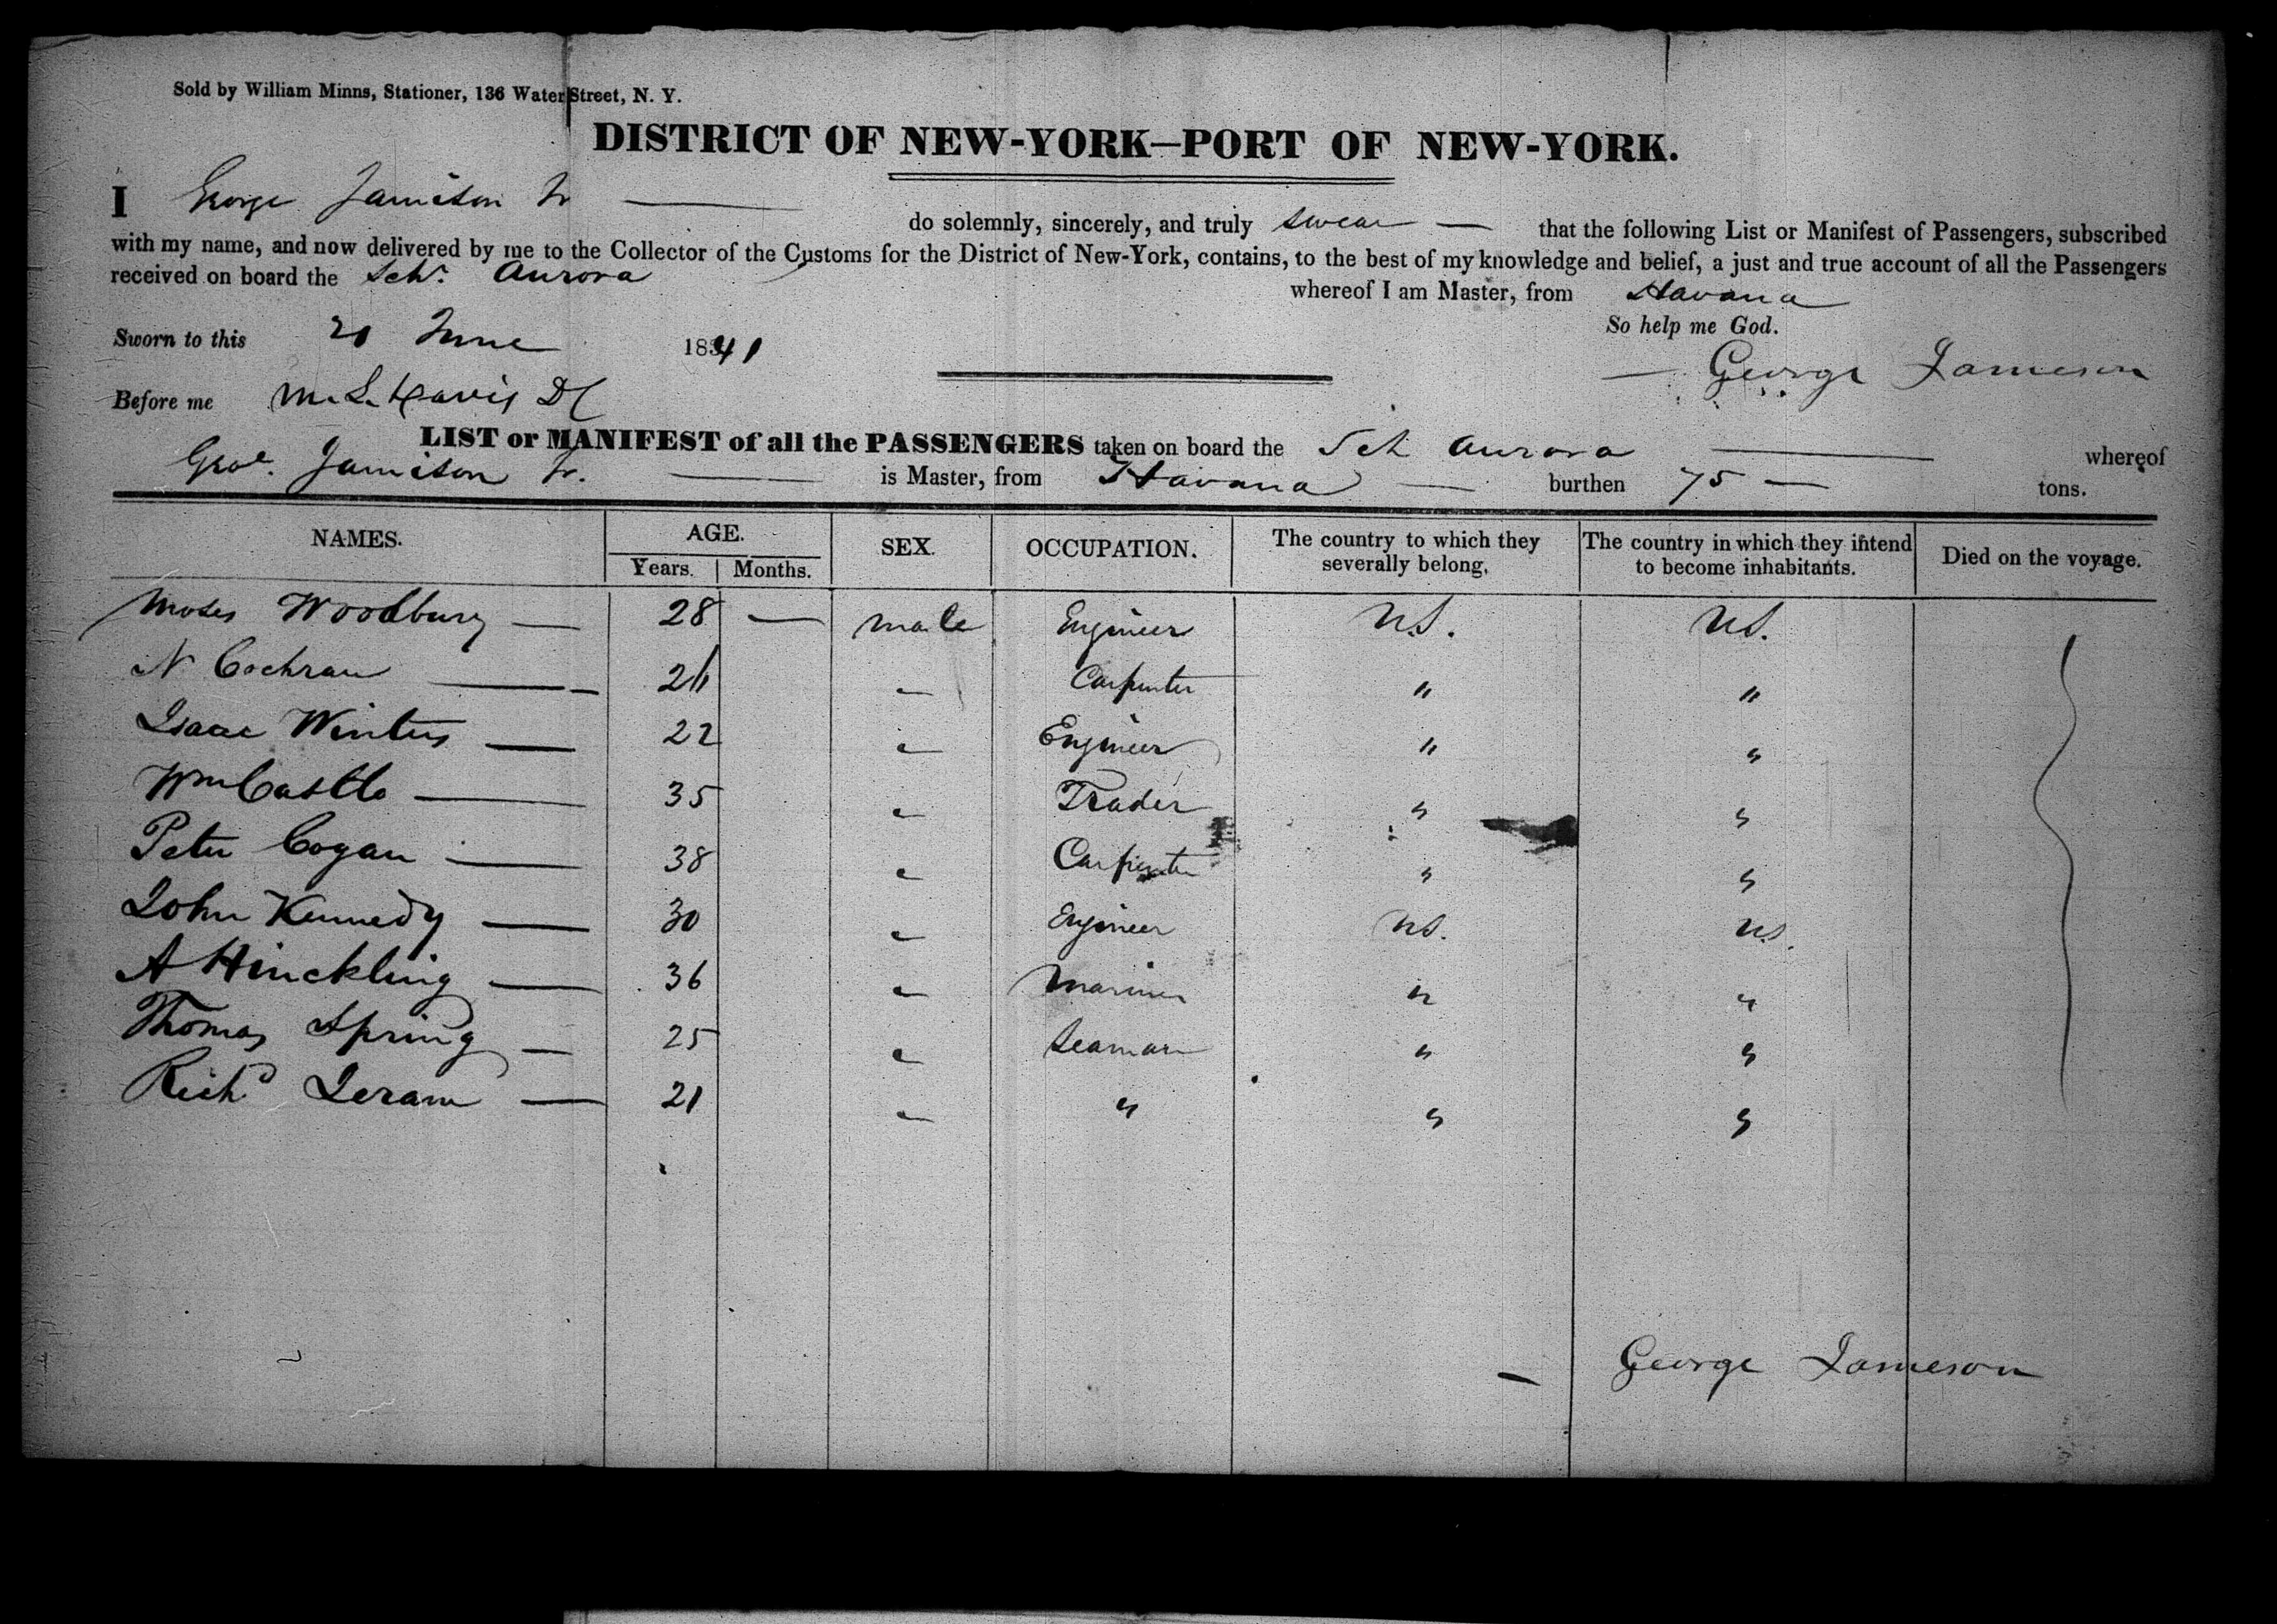 Sold by William Minns, Stationer, 136 Water Street, N. Y.
DISTRICT OF NEW-YORK—PORT OF NEW-YORK.
I George Jamieson Jr — do solemnly, sincerely, and truly swear — that the following List or Manifest of Passengers, subscribed
with my name, and now delivered by me to the Collector of the Customs for the District of New-York, contains, to the best of my knowledge and belief, a just and true account of all the Passengers
received on board the Schr. Aurora whereof I am Master, from Havana
So help me God.
Sworn to this 21 June 1841
George Jameson
Before me M. L. Davis DC
LIST or MANIFEST of all the PASSENGERS taken on board the Sch Aurora — whereof
Geoe. Jamieson Jr. — is Master, from Havana — burthen 75 — tons.
NAMES. AGE. SEX. OCCUPATION. The country to which they severally belong. The country in which they intend to become inhabitants. Died on the voyage.
Years. Months.
Moses Woodbury — 28 — male Engineer U.S. U.S.
N Cochran — 26 " Carpenter " "
Isaac Winters — 22 " Engineer " "
Wm Castle — 35 " Trader " "
Peter Cogan — 38 " Carpenter " "
John Kennedy — 30 " Engineer U.S. U.S.
A Hinckling — 36 " Mariner " "
Thomas Spring — 25 " Seaman " "
Richd — 21 " " " "
George Jameson